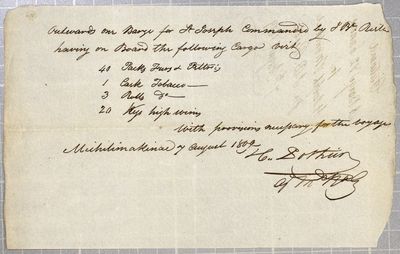 Outwards one Barge for St Joseph Commanded by J Bte
having on Board the following Cargo Vizt
40 Packs Furs & Peltris
1 Cask Tobacco —
3 Rolls Do —
20 Kegs high wines
With provisions necessary for the voyage
Michilimakinac 7 August 1809